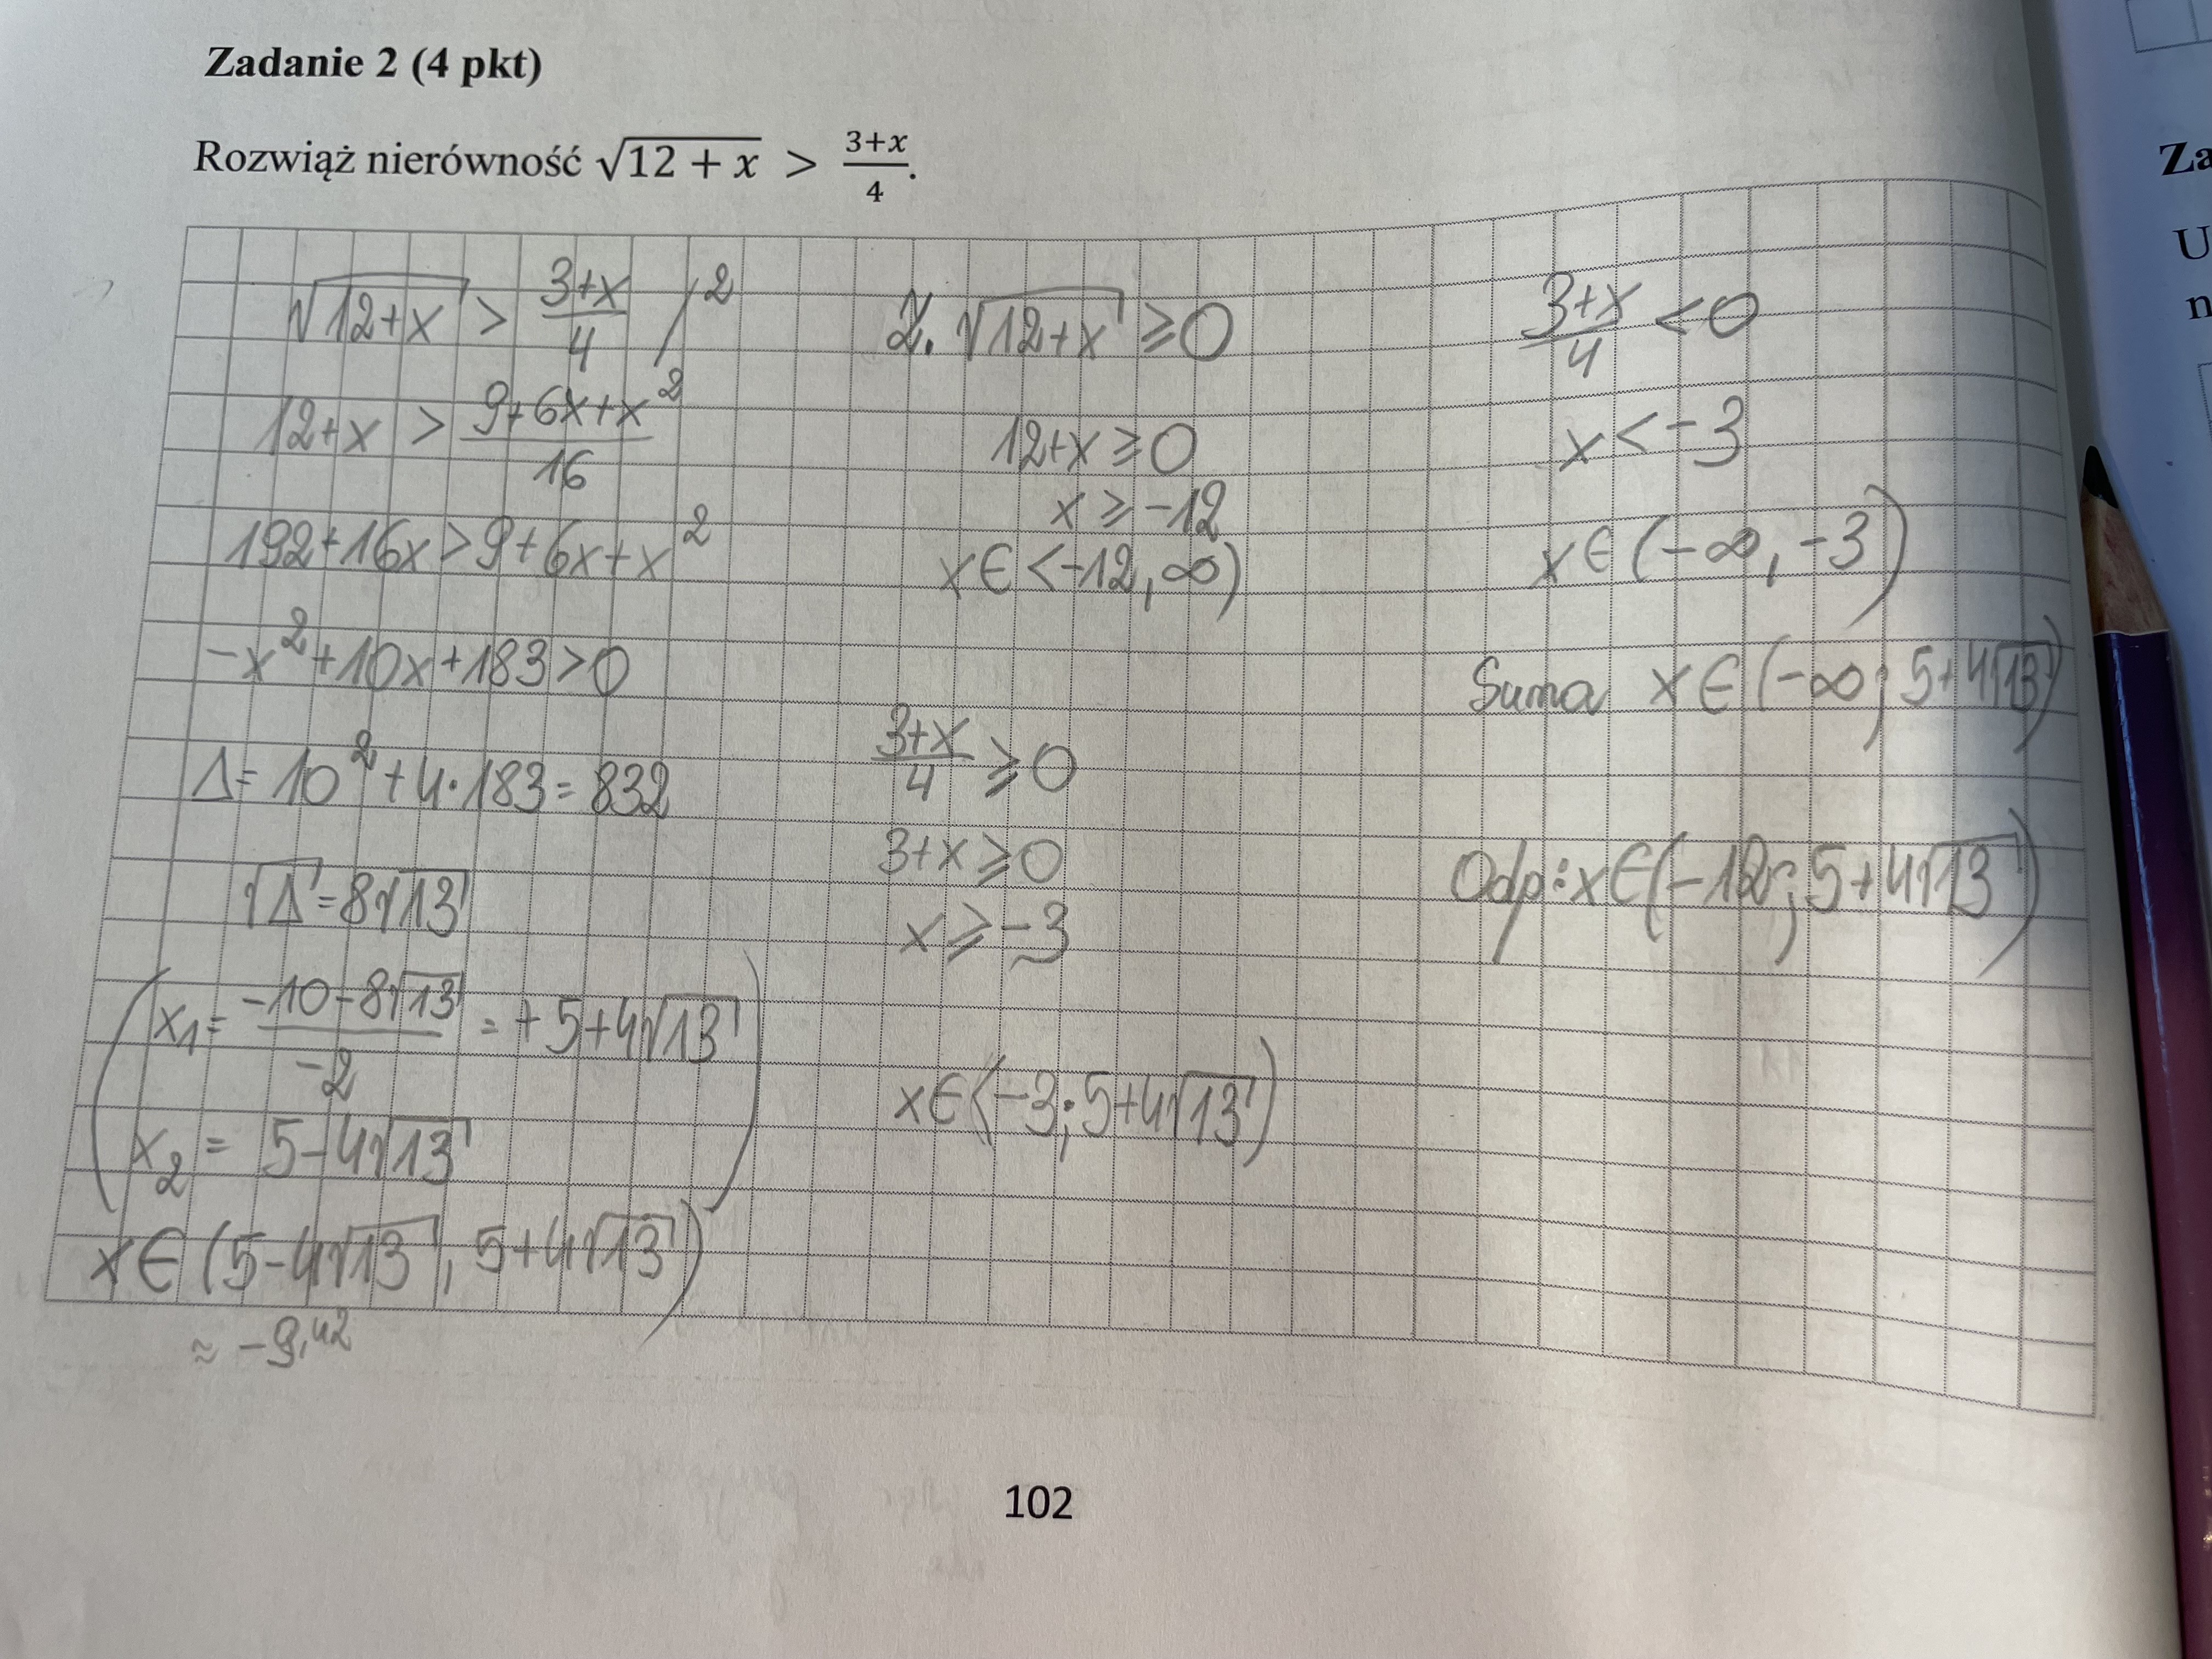 Zadanie 2 (4 pkt)
Rozwiąż nierówność √(12 + x) > (3+x)/4.
√(12+x) > (3+x)/4 /²
12+x > (9+6x+x²)/16
192+16x>9+6x+x²
-x²+10x+183>0
Δ= 10²+4·183=832
√Δ=8√13
x₁= (-10-8√13)/(-2) = +5+4√13
x₂= 5-4√13
x∈(5-4√13, 5+4√13)
≈ -9,42
Z. √(12+x) ⩾0
12+x⩾0
x⩾-12
x∈<-12,∞)
(3+x)/4 ⩾0
3+x⩾0
x⩾-3
x∈<-3;5+4√13)
(3+x)/4 <0
x<-3
x∈(-∞,-3)
Suma x∈(-∞; 5+4√13)
Odp: x∈(-12; 5+4√13)
102
Za
U
n